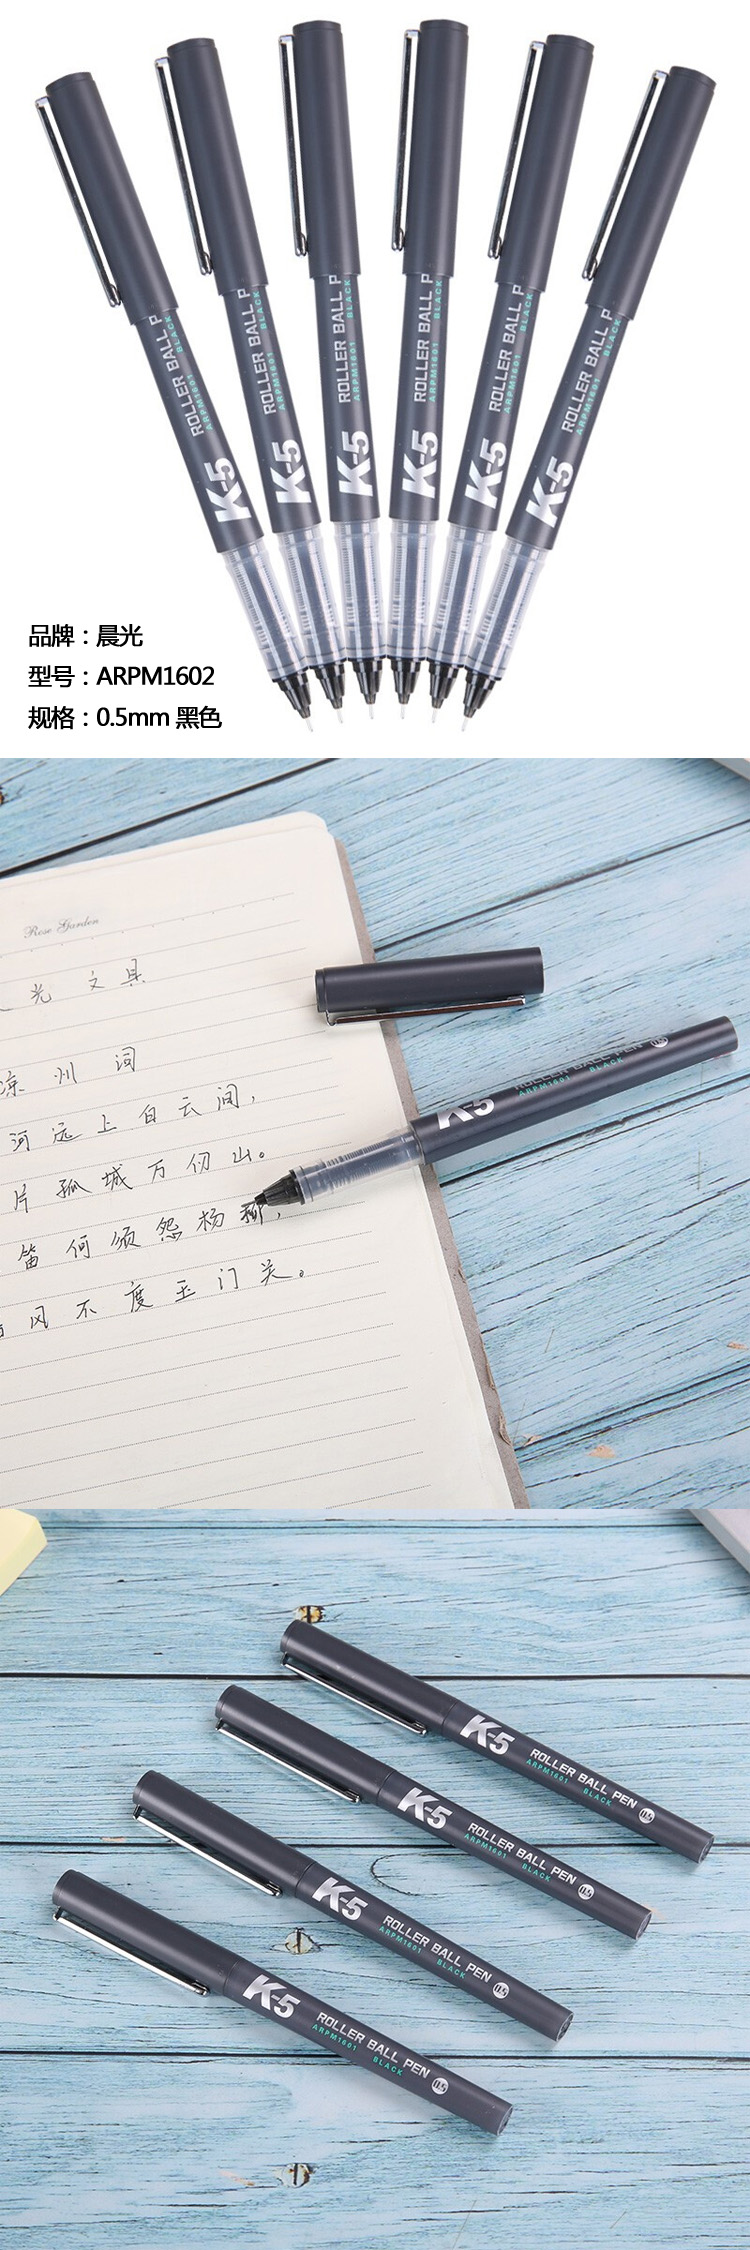 K-5 ROLLER BALL P
ARPM1601 BLACK
K-5 ROLLER BALL P
ARPM1601 BLACK
K-5 ROLLER BALL P
ARPM1601 BLACK
K-5 ROLLER BALL P
ARPM1601 BLACK
K-5 ROLLER BALL P
ARPM1601 BLACK
K-5 ROLLER BALL P
ARPM1601 BLACK
品牌：晨光
型号：ARPM1602
规格：0.5mm 黑色
Rose Garden
光 文具
凉州词
河远上白云间，
片孤城万仞山。
笛何须怨杨柳，
风不度玉门关。
K-5 ROLLER BALL PEN 0.5
ARPM1601 BLACK
K-5 ROLLER BALL PEN 0.5
ARPM1601 BLACK
K-5 ROLLER BALL PEN 0.5
ARPM1601 BLACK
K-5 ROLLER BALL PEN 0.5
ARPM1601 BLACK
K-5 ROLLER BALL PEN 0.5
ARPM1601 BLACK